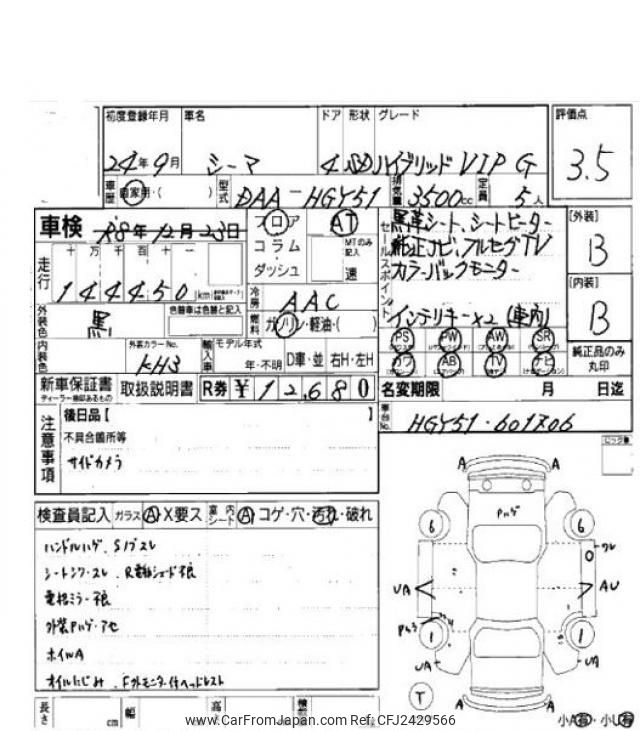 初度登録年月 車名 ドア 形状 グレード 評価点
24年9月 シーマ 4 SD ハイブリッド VIP G 3.5
車歴 自家用・( ) 型式 DAA-HGY51 排気量 3500cc 定員 5人
車検 R8年12月23日 フロア AT
コラム・ MTのみ記入
ダッシュ 速
セールスポイント
黒革シート、シートヒーター
純正ナビ、フルセグTV
カラーバックモニター
インテリキー×2 (車内)
[外装]
B
[内装]
B
走行 十 万 千 百 十 一
144450 km
冷房 AAC
外装色 黒 色替車は色替と記入
燃料 ガソリン・軽油・( )
PS PW AW SR
カワ AB TV ナビ
純正品のみ丸印
内装色 外装カラーNo. KH3
輸入車 モデル年式 年・不明 D車・並 右H・左H
新車保証書 取扱説明書 R券 ¥12,680
ディーラー捺印あるもの
名変期限 月 日迄
車台No. HGY51-601706
注意事項
後日品【 】
不具合箇所等
サイドカメラ
検査員記入 ガラス A X要ス 室内シート A コゲ・穴・汚れ・破れ
ハンドルハゲ、Sノブスレ
シートシワ・スレ、R電動シェード不良
電格ミラー不良
外装Pハゲ・アセ
ホイルA
オイルにじみ、Fカモニター付ヘッドレスト
A A
Pハゲ
6 6
ワレ
UA AU
1 1
UA UA
T
A A
小A有・小U有
長さ cm 幅 高
www.CarFromJapan.com Ref:CFJ2429566